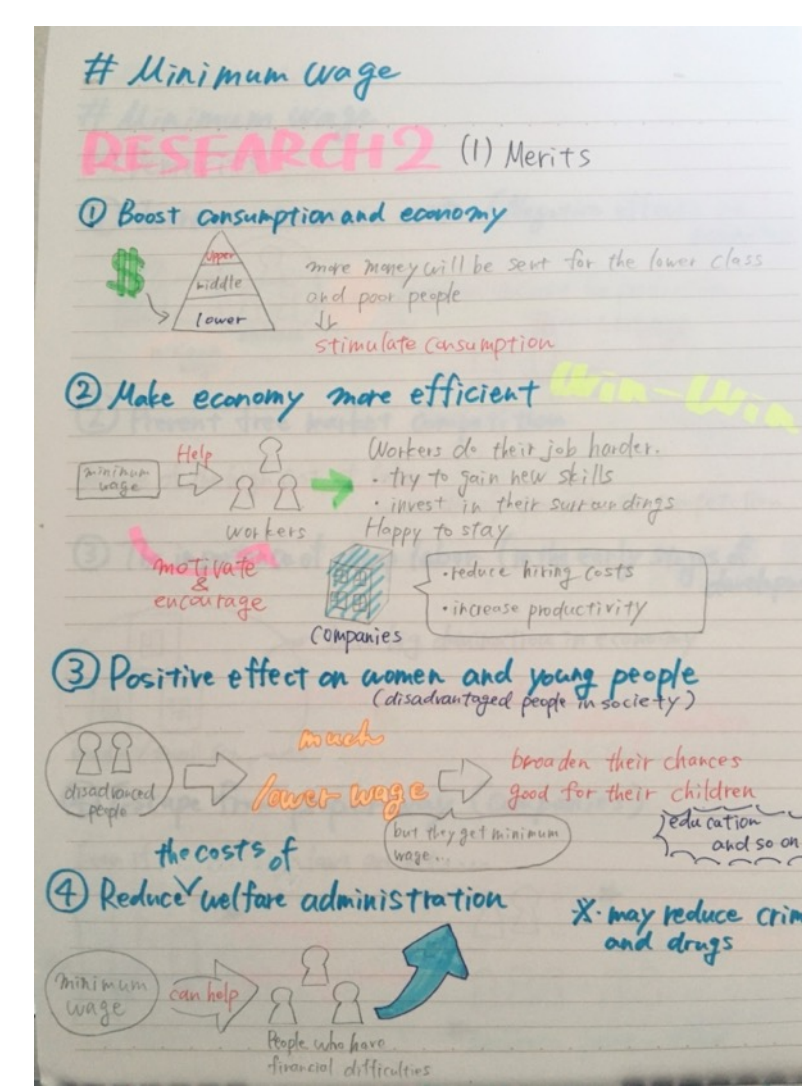 # Minimum wage
RESEARCH2 (1) Merits
① Boost consumption and economy
$
upper
middle
lower
more money will be sent for the lower class
and poor people
stimulate consumption
② Make economy more efficient Win-Win
minimum
wage
Help
workers
Workers do their job harder.
・try to gain new skills
・invest in their surroundings
Happy to stay
motivate
&
encourage
companies
・reduce hiring costs
・increase productivity
③ Positive effect on women and young people
(disadvantaged people in society)
people
much
lower wage
but they get minimum
wage...
broaden their chances
good for their children
education
and so on
the costs of
④ Reduce welfare administration
minimum
wage
can help
People who have
financial difficulties
※・may reduce crim
and drugs